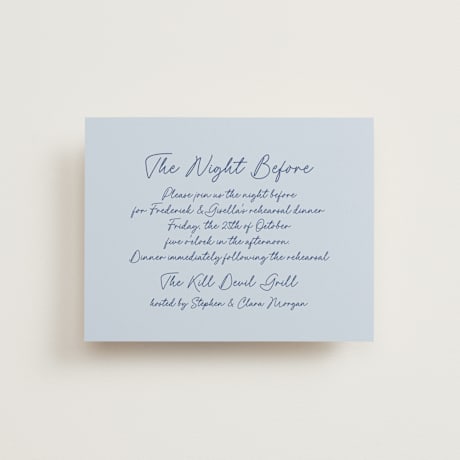 The Night Before
Please join us the night before
for Frederick & Gisella's rehearsal dinner
Friday, the 25th of October
five o'clock in the afternoon.
Dinner immediately following the rehearsal
The Kill Devil Grill
hosted by Stephen & Clara Morgan